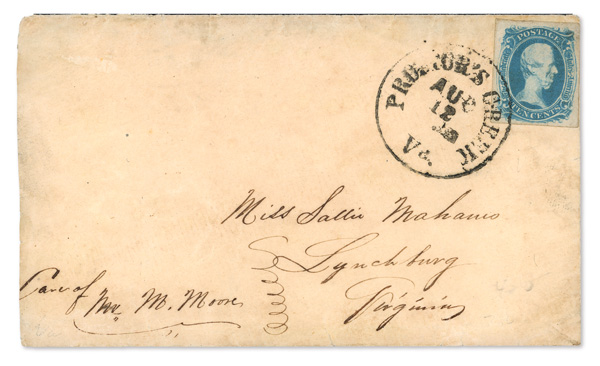 POSTAGE
TEN CENTS
PROCTOR'S CREEK
AUG
12
Va
Miss Sallie Mahanes
Lynchburg
Virginia
Care of
Mr. M. Moore